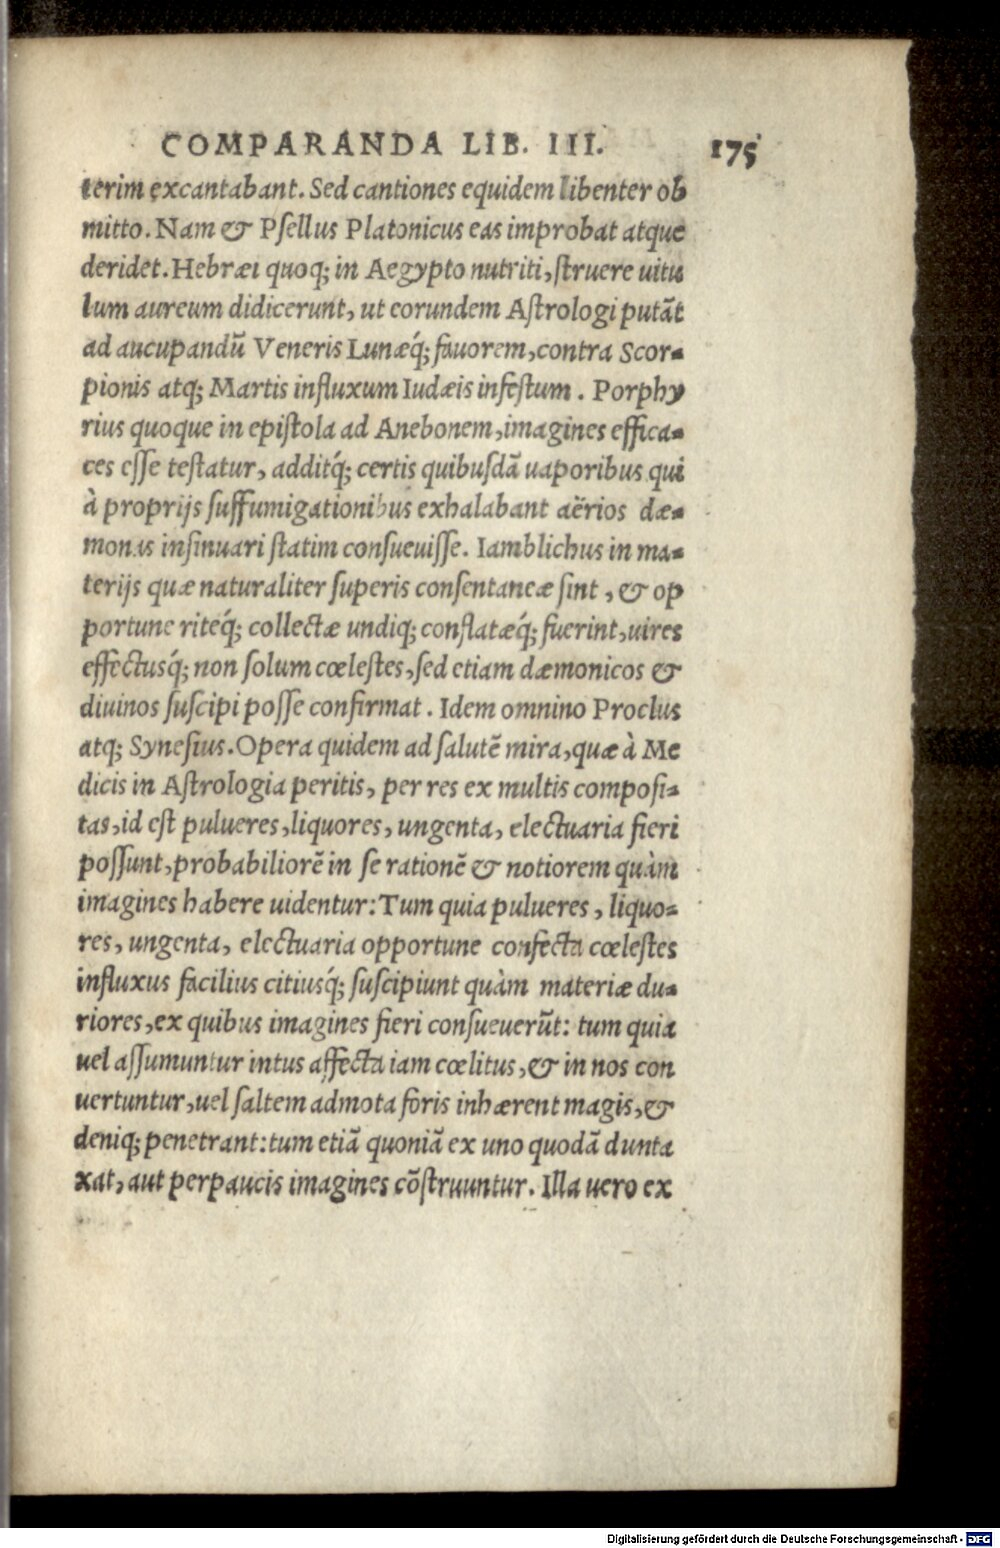 COMPARANDA LIB. III. 175
terim excantabant. Sed cantiones equidem libenter ob
mitto. Nam & Psellus Platonicus eas improbat atque
deridet. Hebræi quoq; in Aegypto nutriti, struere uitu
lum aureum didicerunt, ut eorundem Astrologi putãt
ad aucupandũ Veneris Lunæq́; fauorem, contra Scor-
pionis atq; Martis influxum Iudæis infestum. Porphy
rius quoque in epistola ad Anebonem, imagines effica-
ces esse testatur, additq́; certis quibusdã uaporibus qui
à proprijs suffumigationibus exhalabant aërios dæ-
monas insinuari statim consueuisse. Iamblichus in ma-
terijs quæ naturaliter superis consentaneæ sint, & op
portune riteq́; collectæ undiq; conflatæq́; fuerint, uires
effectusq́; non solum cœlestes, sed etiam dæmonicos &
diuinos suscipi posse confirmat. Idem omnino Proclus
atq; Synesius. Opera quidem ad salutẽ mira, quæ à Me
dicis in Astrologia peritis, per res ex multis composi-
tas, id est pulueres, liquores, ungenta, electuaria fieri
possunt, probabiliorẽ in se rationẽ & notiorem quàm
imagines habere uidentur: Tum quia pulueres, liquo-
res, ungenta, electuaria opportune confecta cœlestes
influxus facilius citiusq́; suscipiunt quàm materiæ du-
riores, ex quibus imagines fieri consueuerũt: tum quia
uel assumuntur intus affecta iam cœlitus, & in nos con
uertuntur, uel saltem admota foris inhærent magis, &
deniq; penetrant: tum etiã quoniã ex uno quodã dunta
xat, aut perpaucis imagines cõstruuntur. Illa uero ex
Digitalisierung gefördert durch die Deutsche Forschungsgemeinschaft - DFG